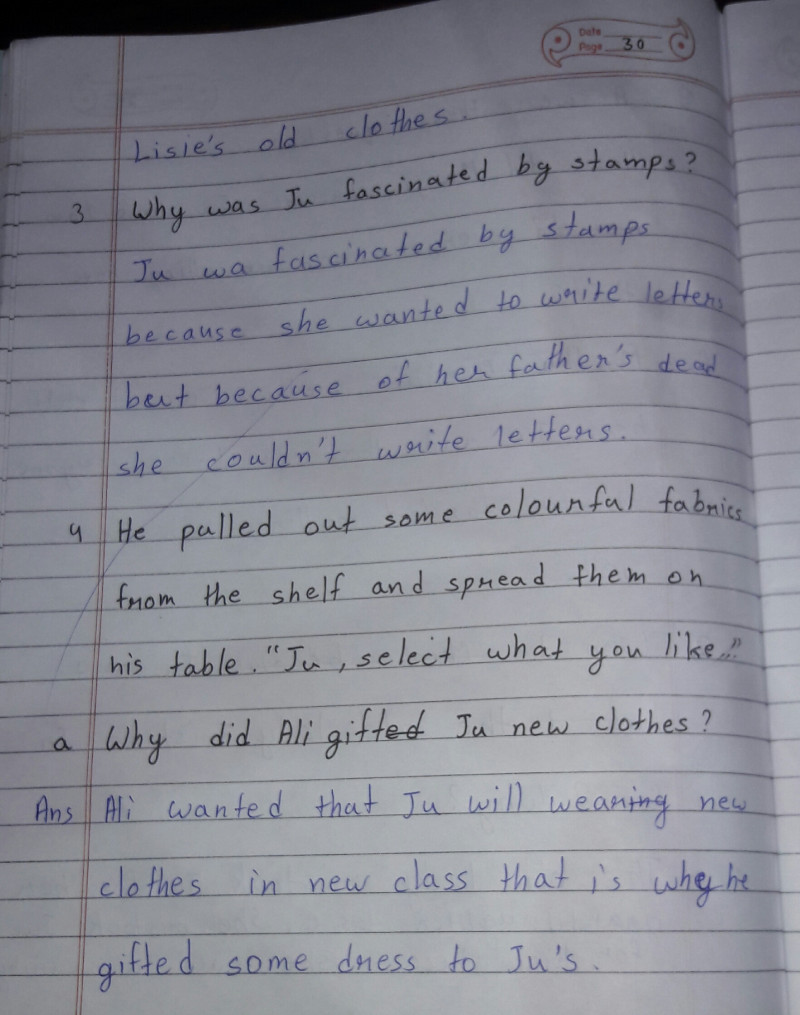 Date
Page 30
Lisie's old clothes.
3 Why was Ju fascinated by stamps?
Ju wa fascinated by stamps
because she wanted to write letters
but because of her father's dead
she couldn't write letters.
4 He pulled out some colourful fabrics
from the shelf and spread them on
his table. "Ju, select what you like."
a Why did Ali gifted Ju new clothes?
Ans Ali wanted that Ju will wearing new
clothes in new class that is why he
gifted some dress to Ju's.